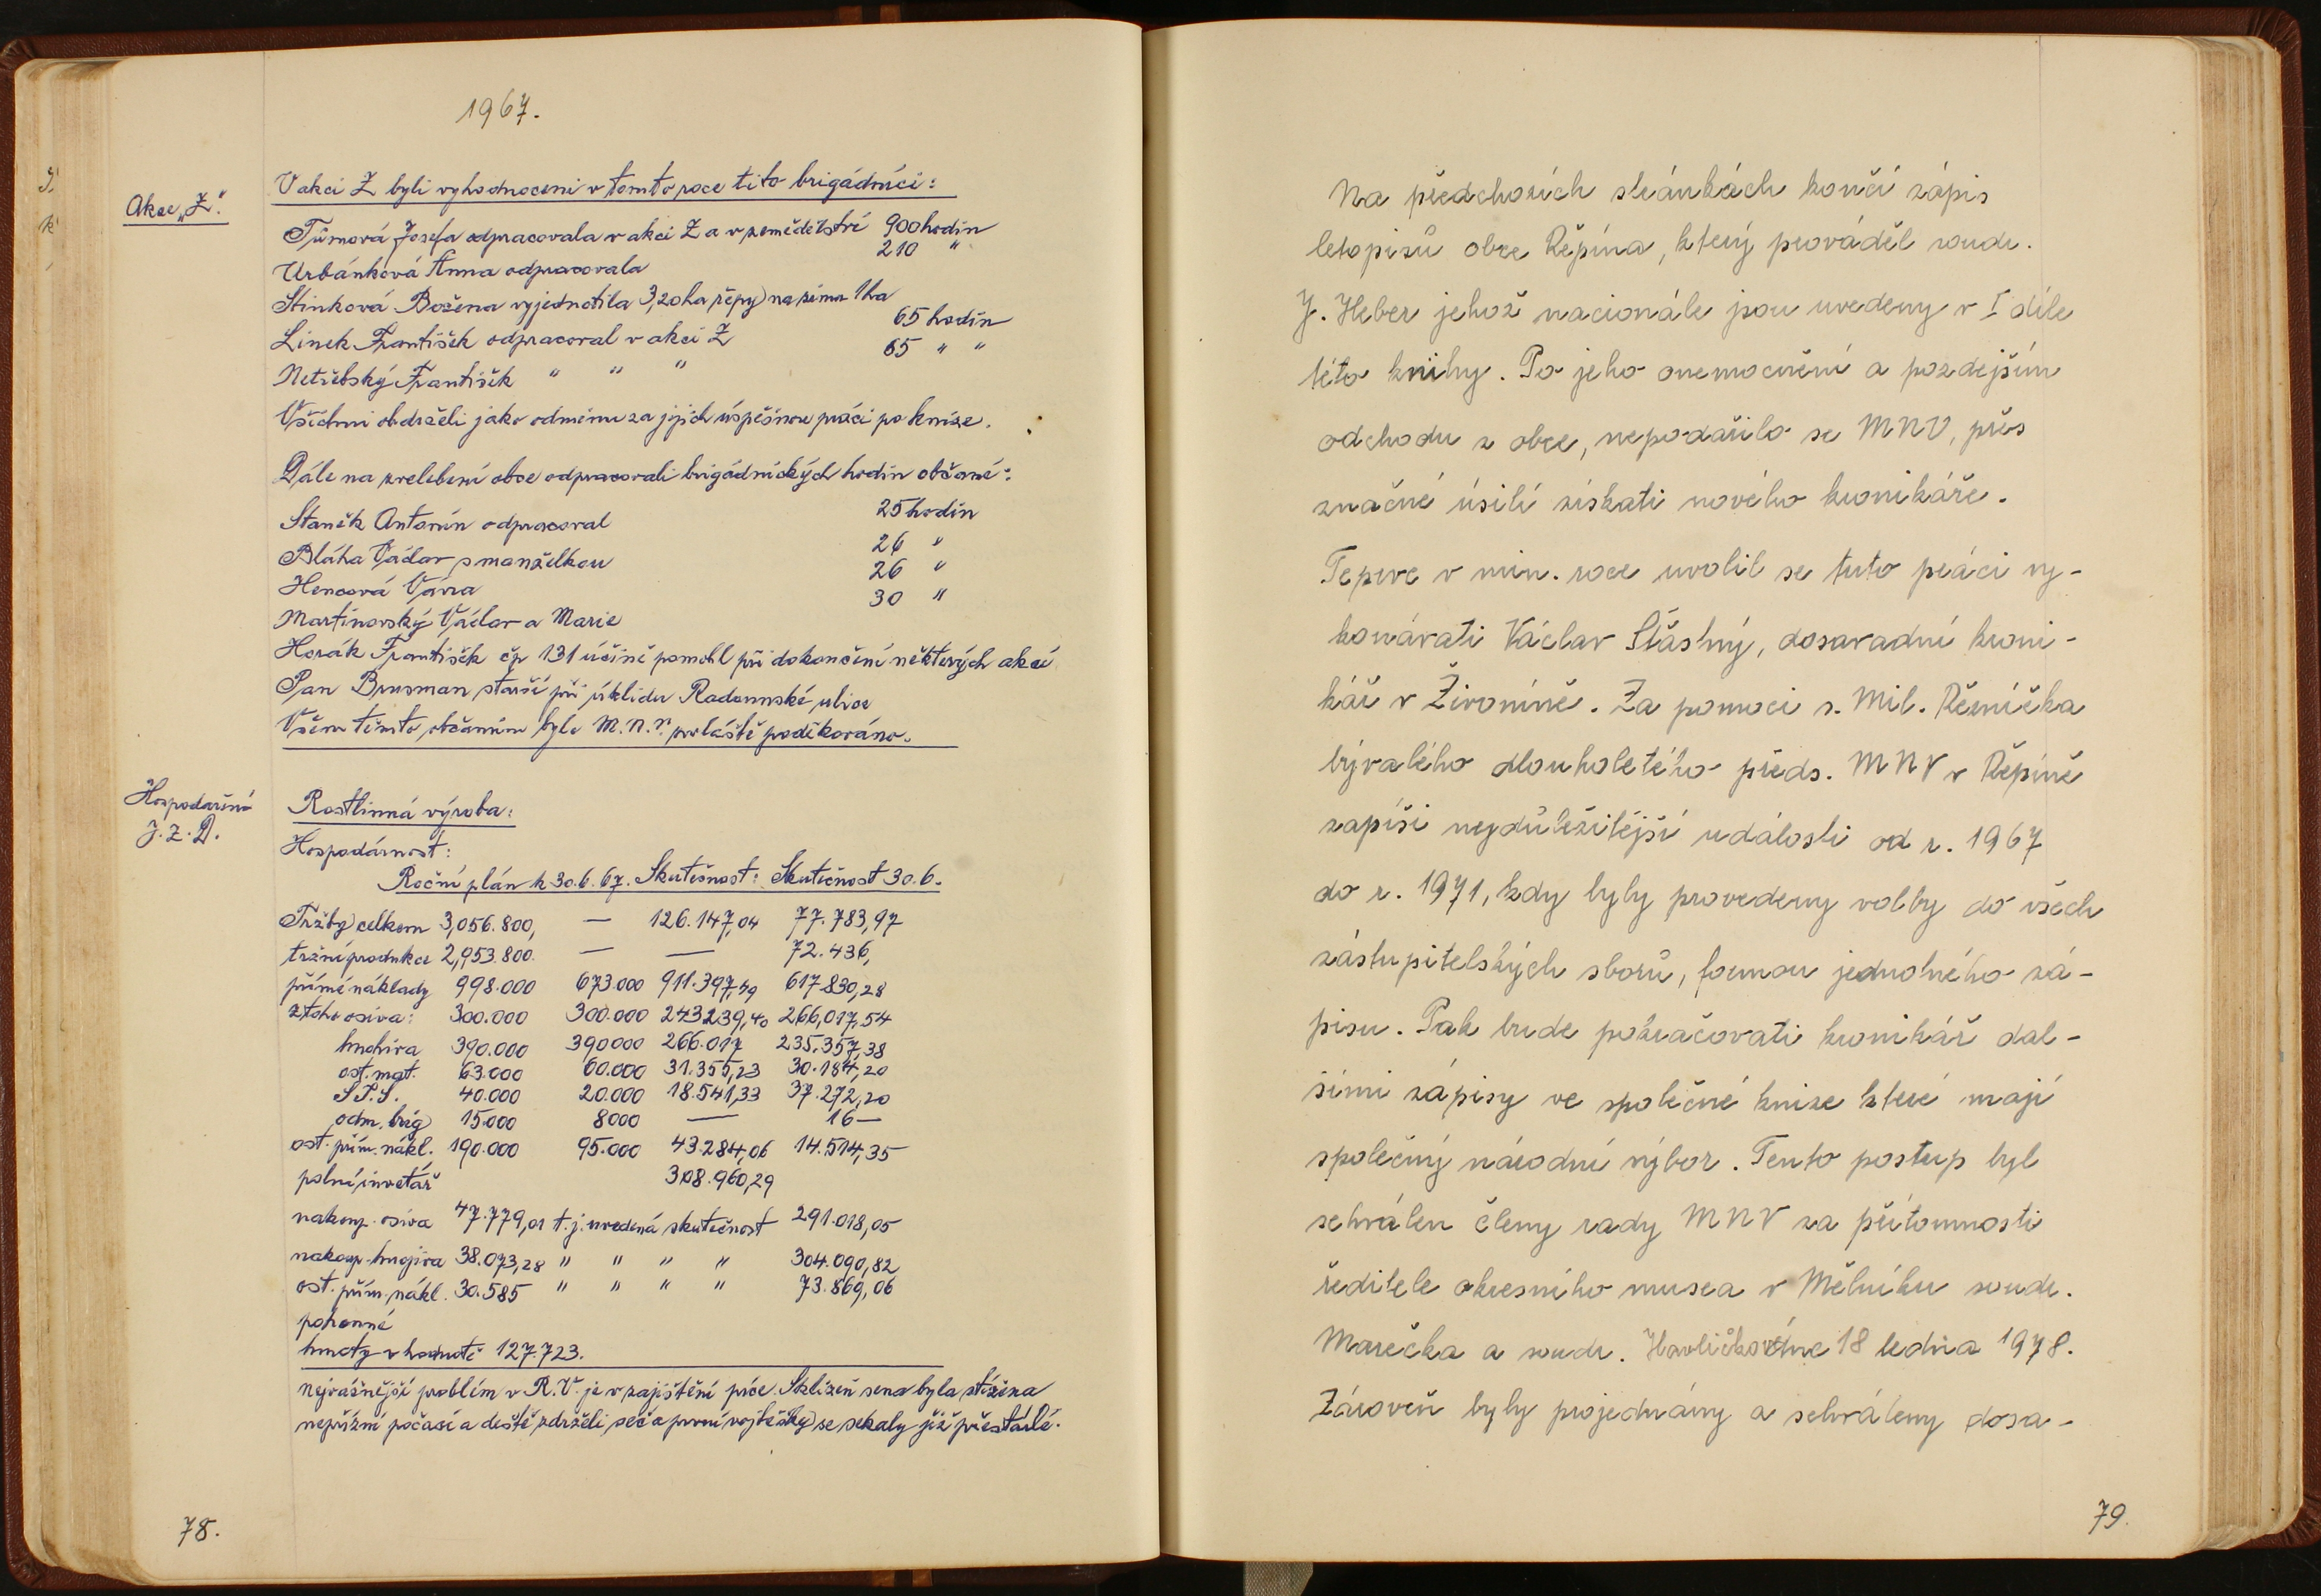 1967.
Akce „Z".
V akci Z byli vyhodnoceni v tomto roce tito brigádníci:
Tůmová Josefa odpracovala v akci Z a v zemědělství 900 hodin
Urbánková Anna odpracovala 210 "
Stinková Božena vyjednotila 3,20 ha řepy na zimu 1 ha
Linek František odpracoval v akci Z 65 hodin
Netřebský František " " " 65 " "
Všichni obdrželi jako odměnu za jejich úspěšnou práci po knize.
Dále na zvelebení obce odpracovali brigádnických hodin občané:
Staněk Antonín odpracoval 25 hodin
Bláha Václav s manželkou 26 "
Hencová Věra 26 "
Martinovský Václav a Marie 30 "
Horák František čp 131 účině pomohl při dokončení některých akcí
Pan Brusman starší při úklidu Radounské ulice
Všem těmto občanům bylo M.N.V. zvláště poděkováno.
Hospodaření
J.Z.D.
Rostlinná výroba:
Hospodárnost:
Roční plán k 30.6.67. Skutečnost: Skutečnost 30.6.
Tržby celkem 3,056.800, — 126.147,04 77.783,97
tržní produkce 2,953.800. — — 72.436,
přímé náklady 998.000 673.000 911.397,49 617.830,28
z toho osiva: 300.000 300.000 243239,40 266,017,54
hnojiva 390.000 390000 266.017 235.357,38
ost. mat. 63.000 60.000 31.355,23 30.184,20
S.T.S. 40.000 20.000 18.541,33 37.272,20
odm. brig 15.000 8000 — 16—
ost. přím. nákl. 190.000 95.000 43.284,06 14.514,35
polní invetář 308.960,29
nakoup. osiva 47.779,01 t.j. uvedená skutečnost 291.018,05
nakoup. hnojiva 38.073,28 " " " " 304.090,82
ost. přím. nákl. 30.585 " " " " 73.869,06
pohonné
hmoty v hodnotě 127.723.
Nejvážnější problém v R.V. je v zajištění píce. Sklizeň sena byla ztížena
nepřízní počasí a deště zdrželi seč a první vojtěšky se sekaly již přestárlé.
78.
Na předchozích stránkách končí zápis
letopisů obce Řepína, který prováděl soudr.
J. Heber jehož nacionále jsou uvedeny v I díle
této knihy. Po jeho onemocnění a pozdejším
odchodu z obce, nepodařilo se MNV, přes
značné úsilí získati nového kronikáře.
Teprve v min. roce uvolil se tuto práci vy-
konávati Václav Šťastný, dosavadní kroni-
kář v Živoníně. Za pomoci s. Mil. Řezníčka
bývalého dlouholetého předs. MNV v Řepíně
zapíši nejdůležitější události od r. 1967
do r. 1971, kdy byly provedeny volby do všech
zástupitelských sborů, formou jednotného zá-
pisu. Pak bude pokračovati kronikář dal-
šími zápisy ve společné knize které mají
společný národní výbor. Tento postup byl
schválen členy rady MNV za přítomnosti
ředitele okresního musea v Mělníku soudr.
Marečka a soudr. Havlíčkové dne 18 ledna 1978.
Zároveň byly projednány a schváleny dosa-
79.